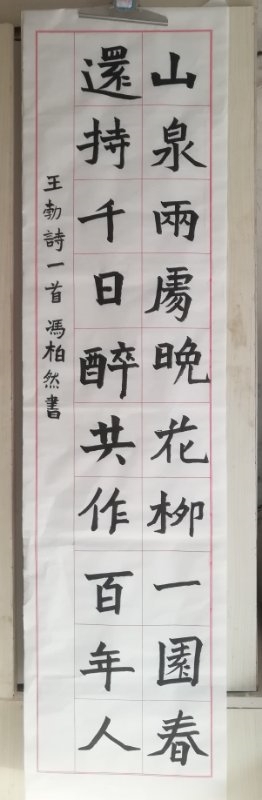 山泉兩處晚花柳一園春
還持千日醉共作百年人
王勃詩一首 馮柏然書